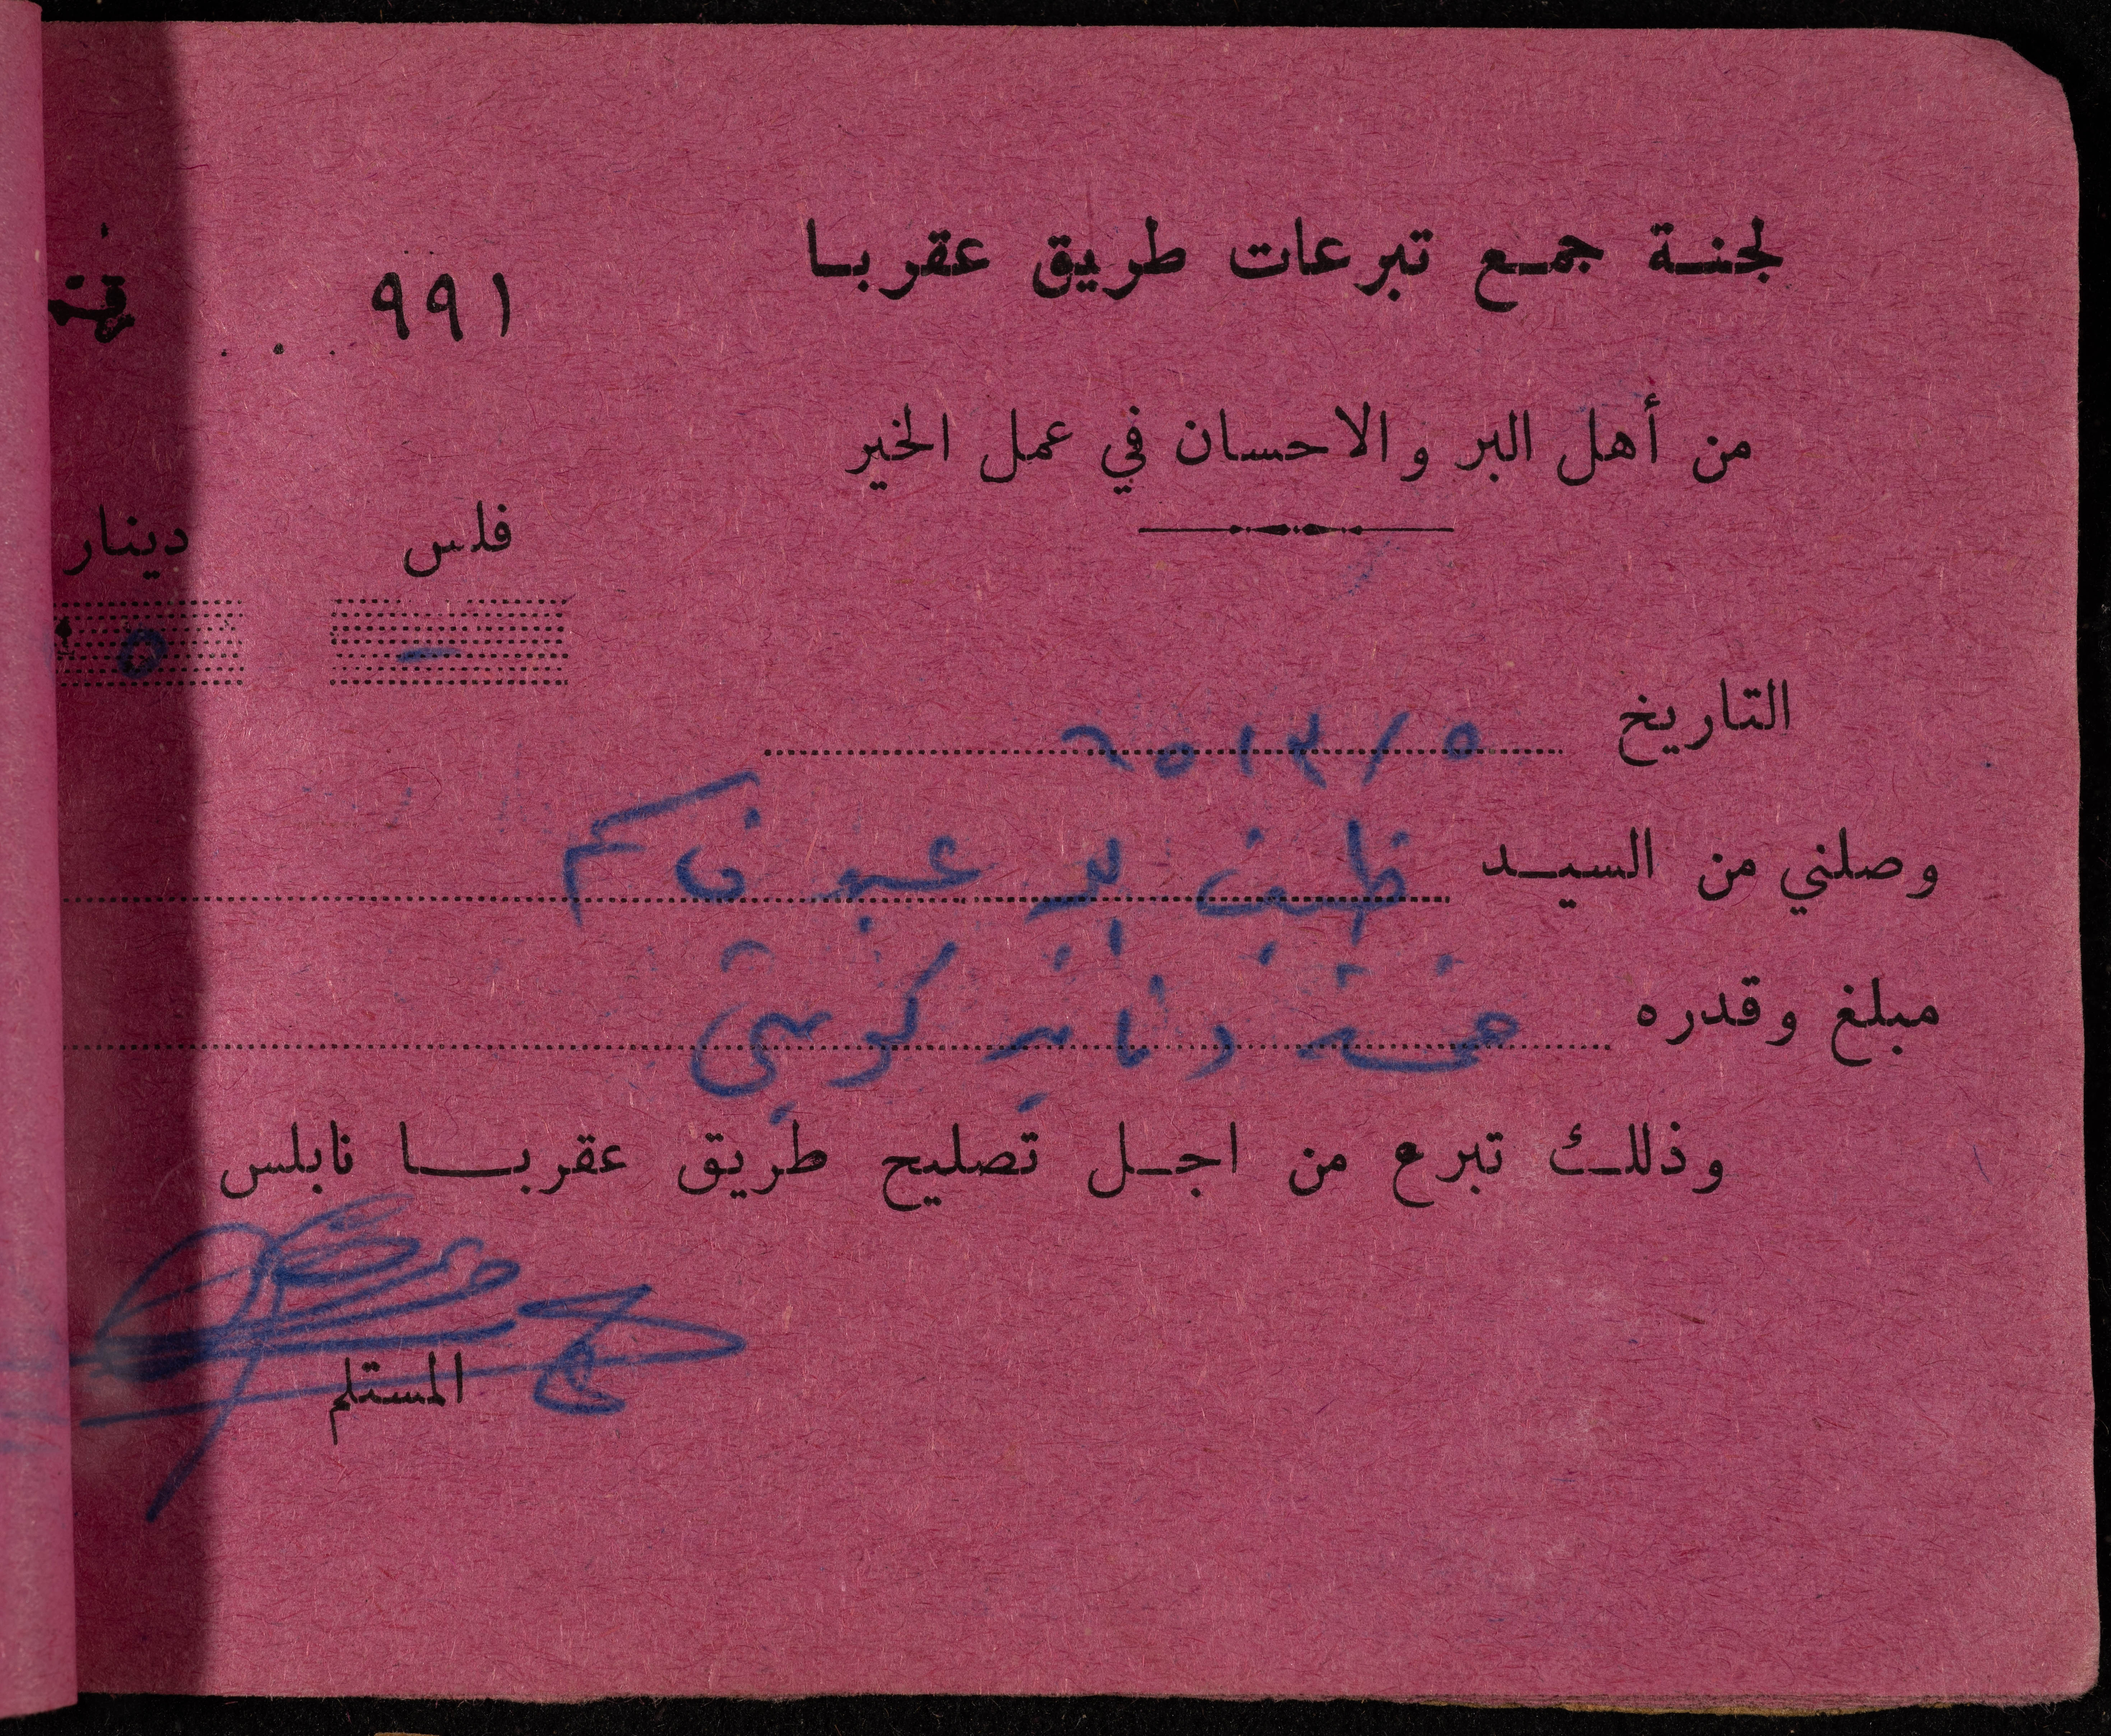 لجنة جمع تبرعات طريق عقربا
٩٩١
من أهل البر والاحسان في عمل الخير
فلس دينار
- ٥
التاريخ ٥ / ٣ / ٥٦
وصلني من السيد نظيف عبد
مبلغ وقدره خمسة دنانير كويتي
وذلك تبرع من اجل تصليح طريق عقربا نابلس
المستلم